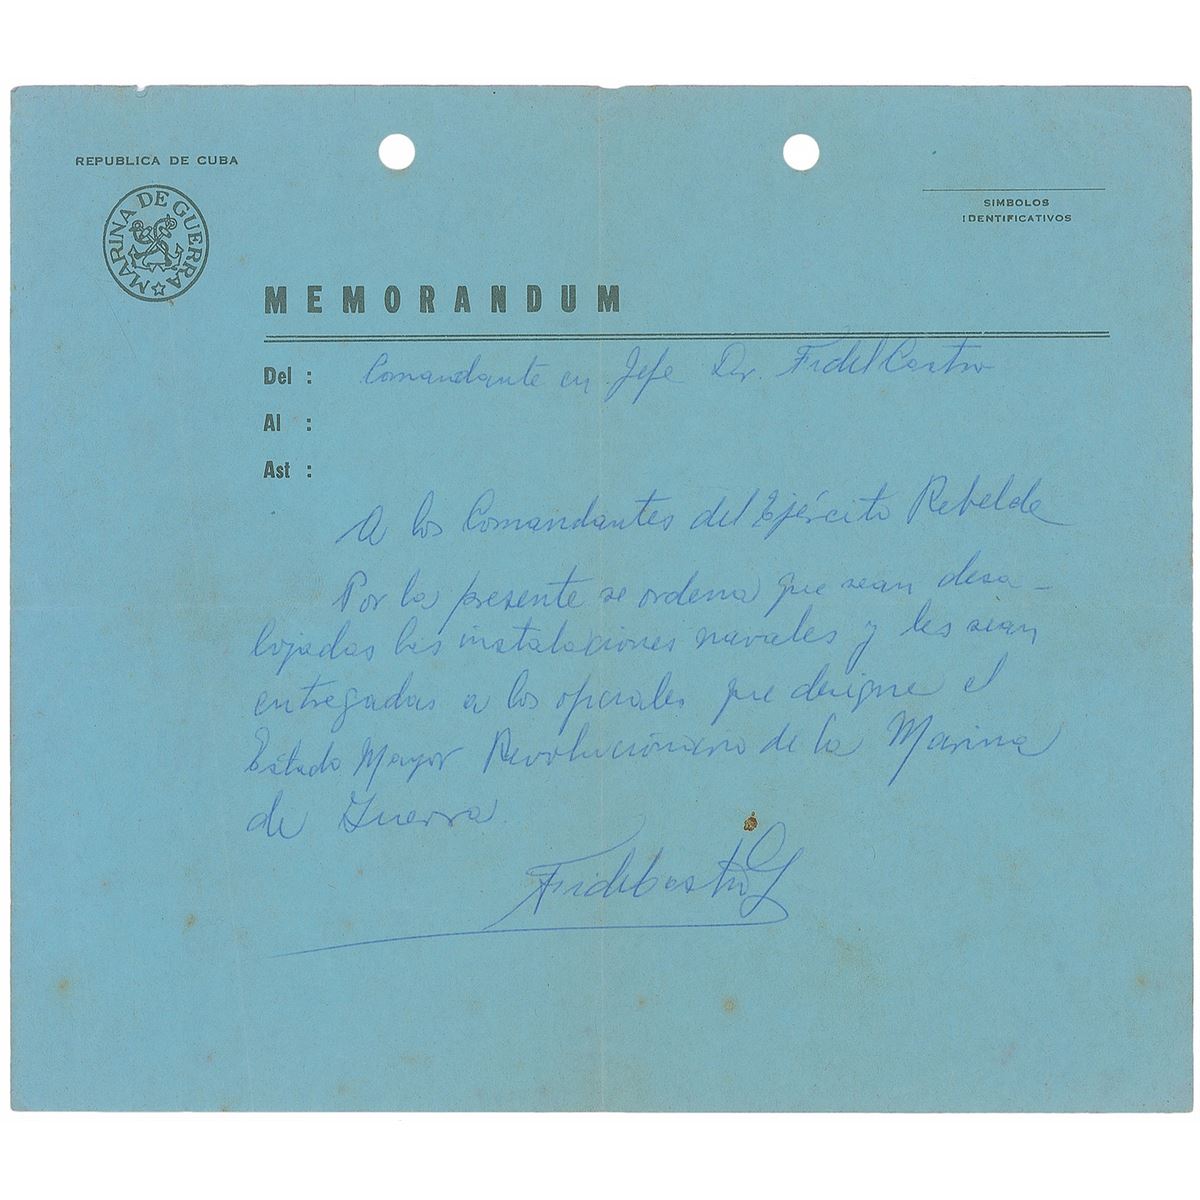 REPUBLICA DE CUBA
MARINA DE GUERRA
SIMBOLOS
IDENTIFICATIVOS
MEMORANDUM
Del : Comandante en Jefe Dr. Fidel Castro
Al :
Ast :
A los Comandantes del Ejército Rebelde
Por la presente se ordena que sean desa-
lojadas las instalaciones navales y les sean
entregadas a los oficiales que designe el
Estado Mayor Revolucionario de la Marina
de Guerra.
Fidel Castro